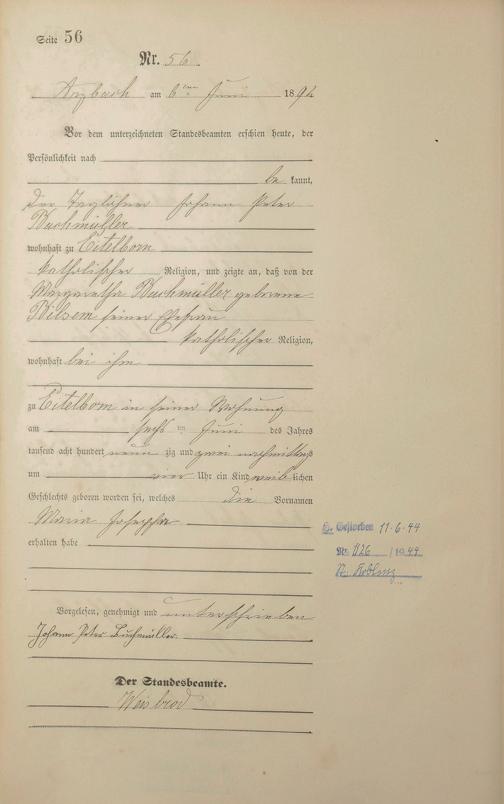 Seite 56
Nr. 56.
Arzbach am 6ten Juni 1892
Vor dem unterzeichneten Standesbeamten erschien heute, der
Persönlichkeit nach
be kannt,
der Taglöhner Johann Peter
Buchmüller
wohnhaft zu Eitelborn
katholischer Religion, und zeigte an, daß von der
Margaretha Buchmüller geborene
Bilsem seiner Ehefrau
katholischer Religion,
wohnhaft bei ihm
zu Eitelborn in seiner Wohnung
am sechsten Juni des Jahres
tausend acht hundert neun zig und zwei nachmittags
um vier Uhr ein Kind weiblichen
Geschlechts geboren worden sei, welches die Vornamen
Maria Josepha
erhalten habe
Vorgelesen, genehmigt und unterschrieben
Johann Peter Buchmüller.
Der Standesbeamte.
Weisbrod
Gestorben 11.6.44
Nr. 1126 /1944
Koblenz